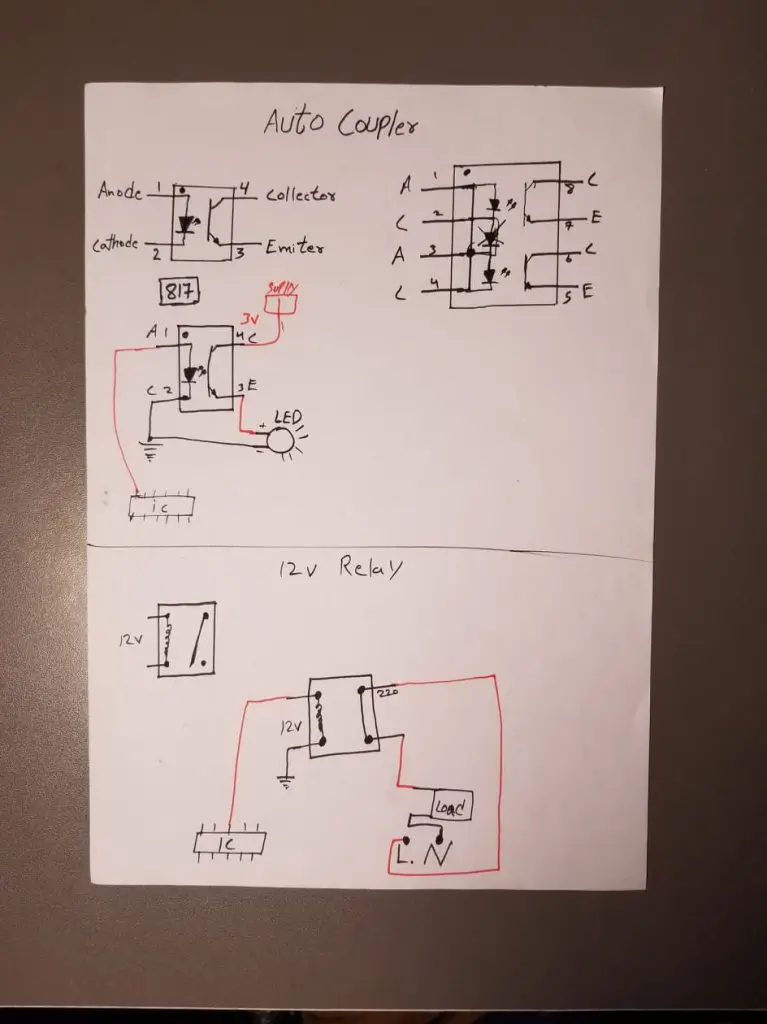 Auto Coupler
Anode 1 4 Collector
Cathode 2 3 Emiter
A 1 8 C
C 2 7 E
A 3 6 C
C 4 5 E
817
Supply
3V
A 1 4 C
C 2 3 E
LED
+
-
ic
12v Relay
12V
220
12V
Load
IC
L. N